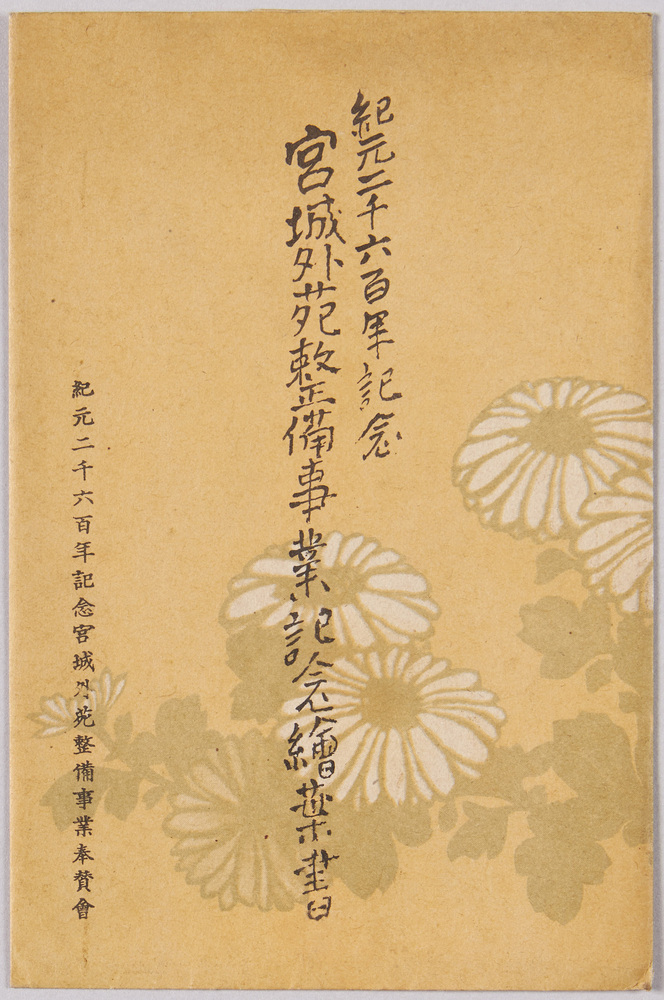 紀元二千六百年記念
宮城外苑整備事業記念繪葉書
紀元二千六百年記念宮城外苑整備事業奉賛會